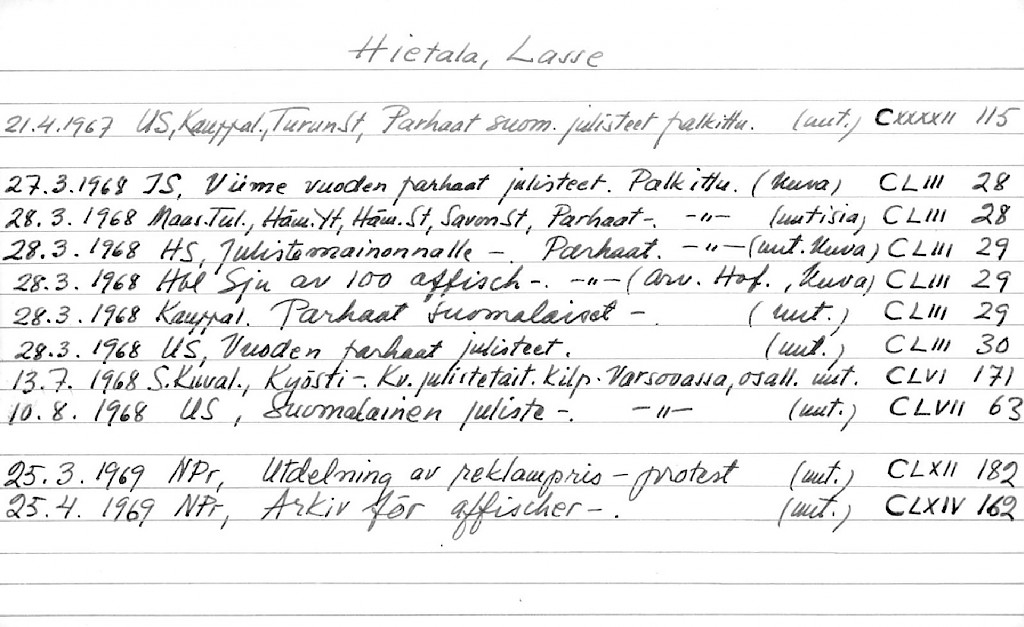 Hietala, Lasse
21.4.1967 US, Kauppal., TurunSt, Parhaat suom. julisteet palkittu. (uut.) CXXXXII 115
27.3.1968 IS, Viime vuoden parhaat julisteet. Palkittu. (kuva) CLIII 28
28.3.1968 Maas.Tul., Häm.Yt, Häm.St, SavonSt, Parhaat-. -"- (uutisia) CLIII 28
28.3.1968 HS, Julistemainonnalle-. Parhaat. -"- (uut. kuva) CLIII 29
28.3.1968 Hbl Sju av 100 affisch-. -"- (arv. Hof., kuva) CLIII 29
28.3.1968 Kauppal. Parhaat suomalaiset-. (uut.) CLIII 29
28.3.1968 US, Vuoden parhaat julisteet. (uut.) CLIII 30
13.7.1968 S.Kuval., Kyösti-. Kv. julistetait. kilp. Varsovassa, osall. uut. CLVI 171
10.8.1968 US, Suomalainen juliste-. -"- (uut.) CLVII 63
25.3.1969 NPr, Utdelning av reklampris-protest (uut.) CLXII 182
25.4.1969 NPr, Arkiv för affischer-. (uut.) CLXIV 162